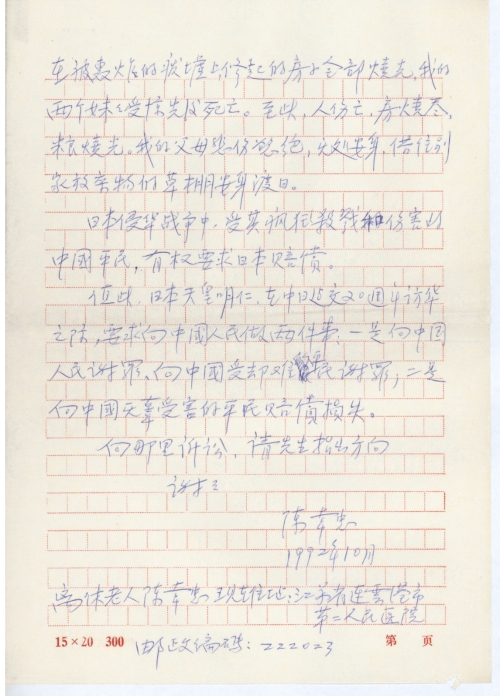 在被轰炸的废墟上修起的房子全部烧光，我的
两个妹妹受惊先后死亡。至此，人伤亡，房烧尽，
粮烧光。我的父母悲伤欲绝，无处安身，借住别
家放杂物的草棚安身渡日。
日本侵华战争中，受其疯狂杀戮和伤害的
中國平民，有权要求日本赔偿。
值此，日本天皇明仁，在中日建交20週年访华
之际，要求向中國人民做两件事：一是向中国
人民谢罪、向中國受却难民谢罪；二是
向中國无辜受害的平民赔償損失。
向那里诉讼，请先生指出方向
谢谢
陈莘忠
1992年10月
离休老人陈莘忠 现在住址：江苏省连雲港市
第二人民医院
15×20 300
邮政编码：222023
第 页